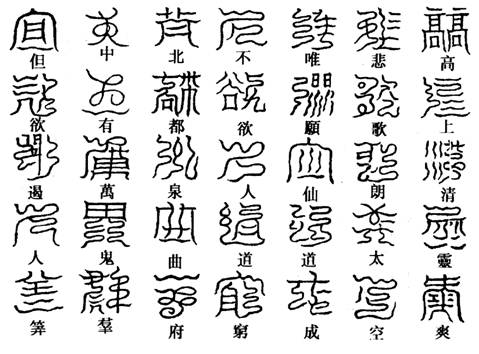 高上清靈爽
悲歌朗太空
唯願仙道成
不欲人道窮
北都泉曲府
中有萬鬼羣
但欲遏人筭